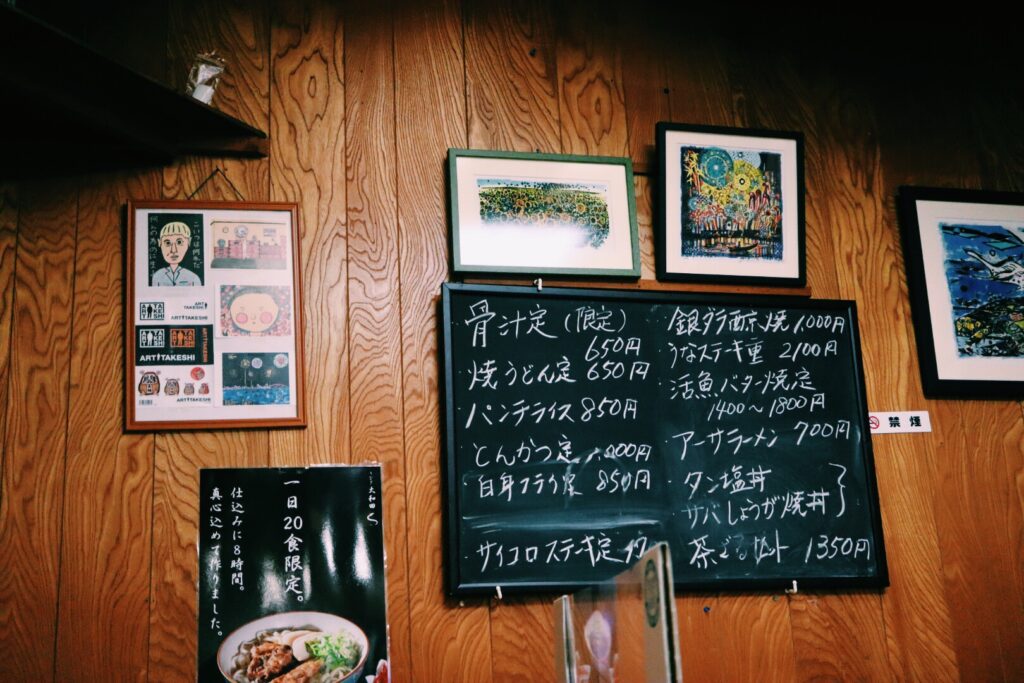 骨汁定(限定)
650円
焼うどん定 650円
パンチライス 850円
とんかつ定
白身フライ定 850円
サイコロステーキ定
銀ダラ西京焼 1,000円
うなステーキ重 2100円
活魚バター焼定
1400〜1800円
アーサラーメン 700円
タン塩丼
サバしょうが焼丼
1350円
禁煙
ART TAKESHI
ART TAKESHI
ART TAKESHI
ART TAKESHI
大和田
一日20食限定。
仕込みに8時間。
真心込めて作りました。